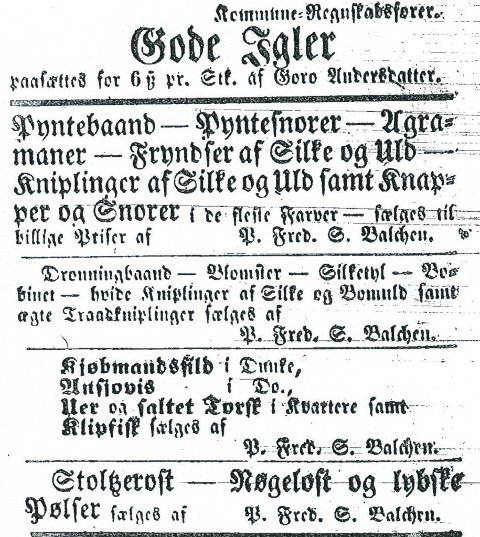 Kommune-Regnskabsfører.
Gode Igler
paasættes for 6 ß pr. Stk. af Goro Andersdatter.
Pyntebaand — Pyntesnorer — Agra-
maner — Fryndser af Silke og Uld —
Kniplinger af Silke og Uld samt Knap-
per og Snorer i de fleste Farver — sælges til
billige Priser af P. Fred. S. Balchen.
Dronningbaand — Blomster — Silketyl — Bo-
binet — hvide Kniplinger af Silke og Bomuld samt
ægte Traadkniplinger sælges af
P. Fred. S. Balchen.
Kjøbmandssild i Dunke,
Ansjovis i Do.,
Uer og saltet Torsk i Kvartere samt
Klipfisk sælges af
P. Fred. S. Balchen.
Stoltzerost — Nøgelost og lybske
Pølser sælges af P. Fred. S. Balchen.